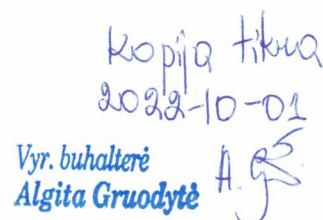 Kopija tikra
2022-10-01
Vyr. buhalterė
Algita Gruodytė